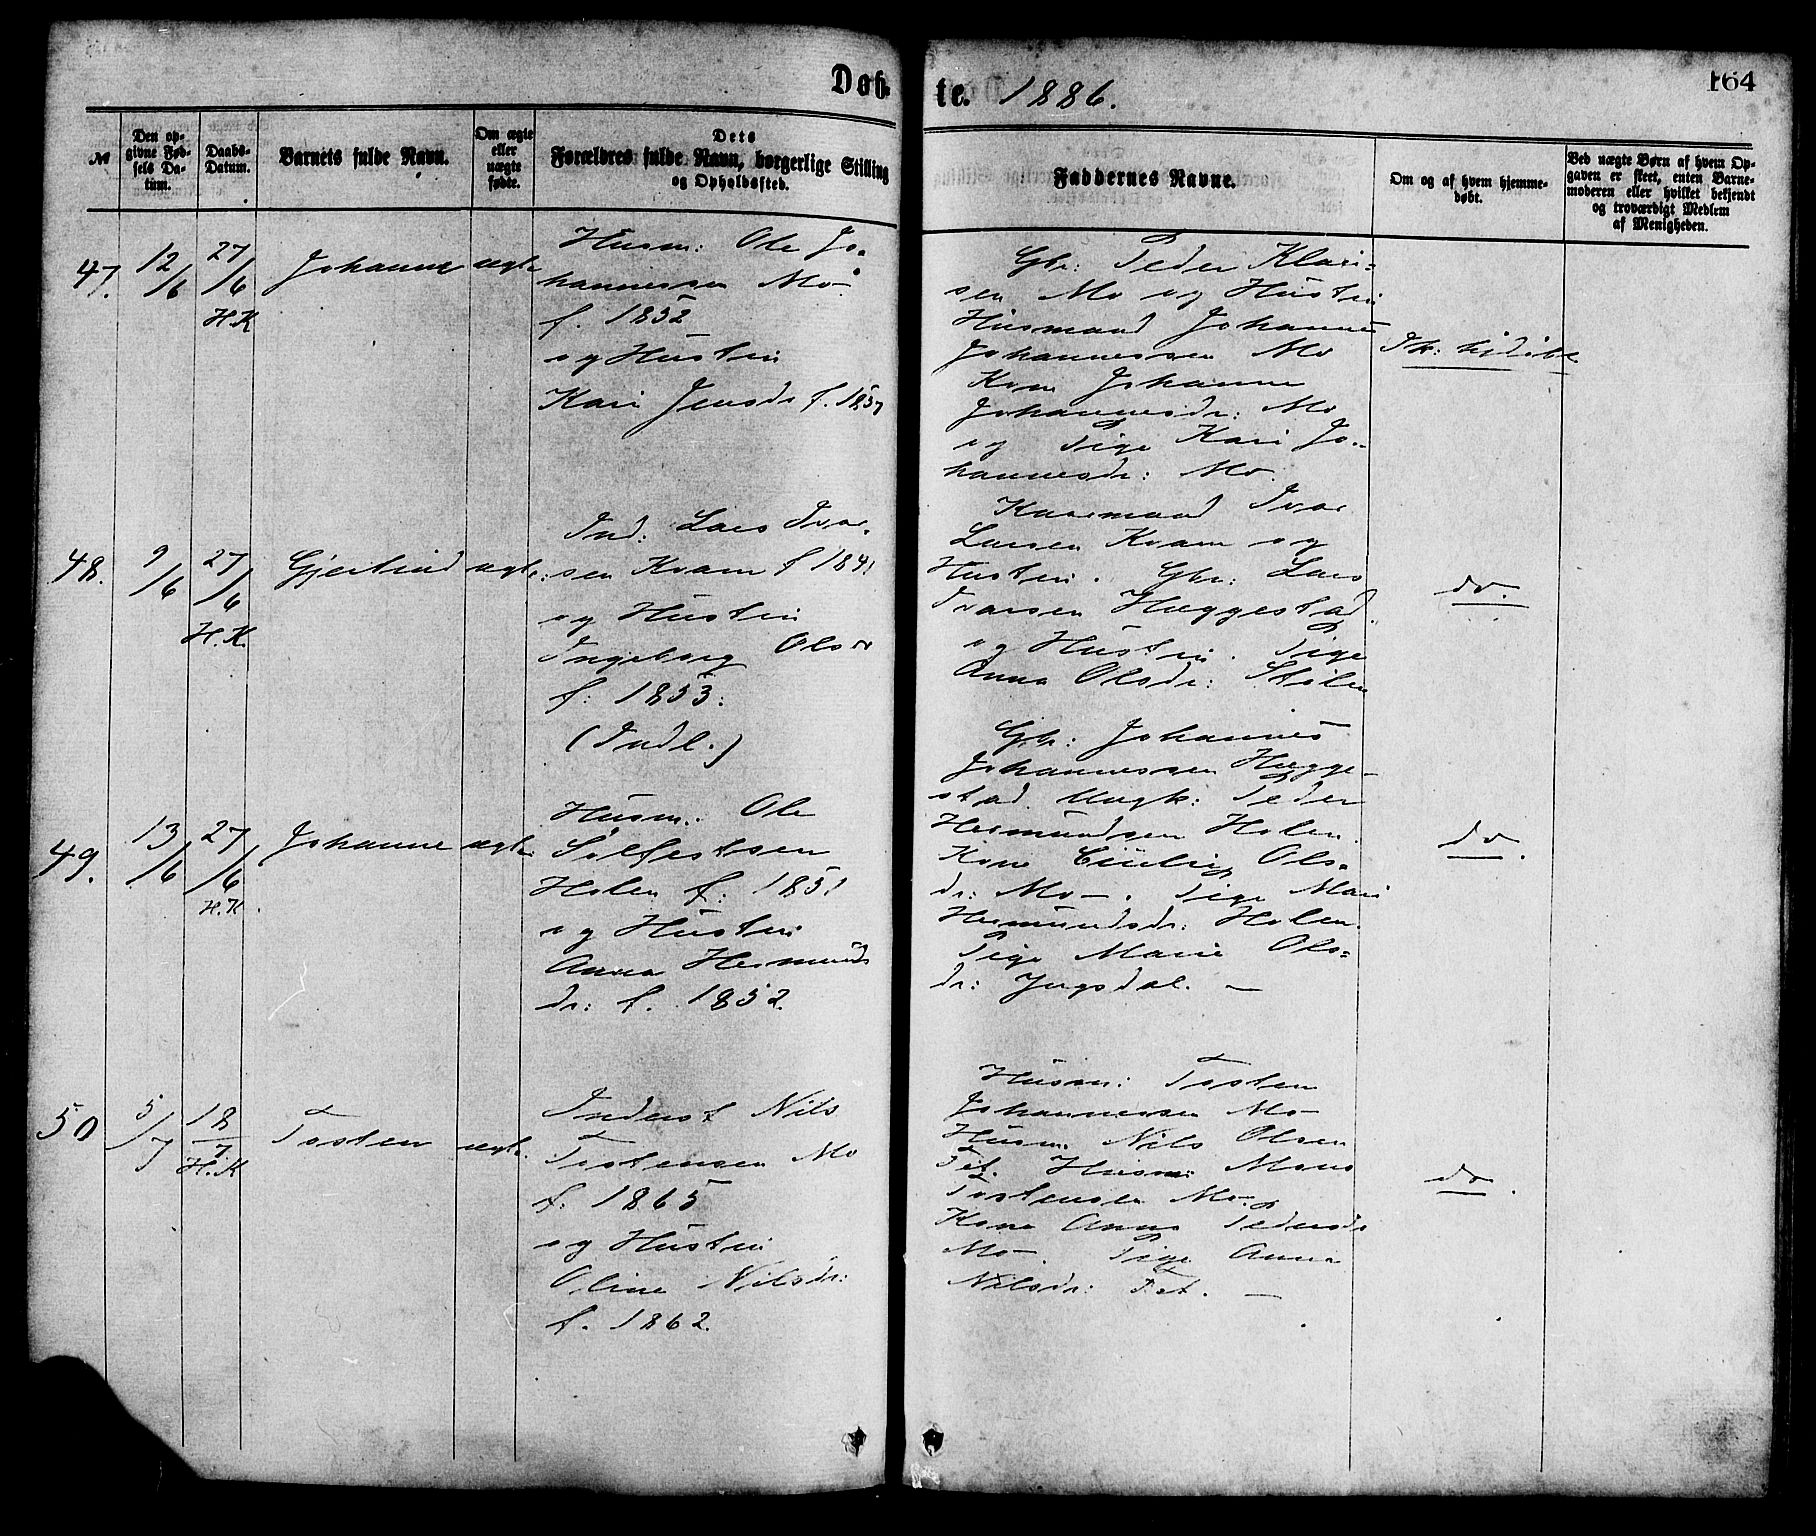 Døb-
te. 1886.
164
№
Den op-
givne Fød-
sels Da-
tum.
Daabs-
Datum.
Barnets fulde Navn.
Om ægte
eller
uægte
født.
Dets
Forældres fulde Navn, borgerlige Stilling
og Opholdssted.
Faddernes Navne.
Om og af hvem hjemme-
døbt.
Ved uægte Børn af hvem Op-
gaven er skeet, enten Barne-
moderen eller hvilket bekjendt
og troværdigt Medlem
af Menigheden.
47.
12/6
27/6
H.K
Johanne
ægte
Husm: Ole Jo-
hannessen Mo
f. 1852
og Hustru
Kari Jensdr f. 1857
Gbr: Peder Klari-
sen Mo og Hustru
Husmand Johannes
Johannessen Mo
Kone Johanne
Johannesdr: Mo
og Pige Kari Jo-
hannesdr: Mo.
48.
9/6
27/6
H.K.
Gjertrud
ægte:
Ind. Lars Ivar-
sen Kvam f 1841
og Hustru
Ingeborg Olsdr
f: 1853:
(Indl.)
Kaarmand Ivar
Larsen Kvam og
Hustru. Gbr: Lars
Ivarsen Hæggestad
og Hustru. Pige
Anna Olsdr: Stølen
do.
49.
13/6
27/6
H.K.
Johanne
ægte
Husm: Ole
Solfestsen
Holen f: 1851
og Hustru
Anna Hermunds
dr: f. 1852.
Gbr: Johannes
Johannessen Hægge-
stad. Ungk: Peder
Hermundsen Holen.
Kone Ols-
dr: Mo. Pige Mari
Hermundsdr: Holen.
Pige Marie Ols-
dr: —
do.
50
5/7
18/7
H.K
Tosten
ægte.
Inderst Nils
Tostensen Mo
f. 1865
og Hustru
Oline Nilsdr:
f. 1862.
Husm: Tosten
Johannessen Mo
Husm Nils Olsen
Fet. Husm: Mons
Tostensen Mo.
Kone Anna Pedersdr
Mo. Pige Anna
Nilsdr: Fet. —
do.